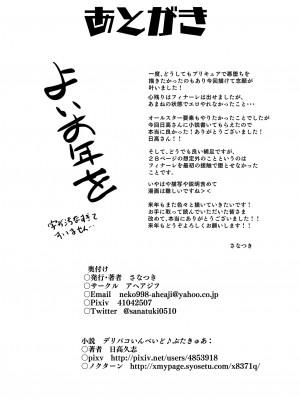 あとがき
よいお年を
字が汚なすぎて
すいません…
一度、どうしてもプリキュアで悪堕ちを
描きたかったのもあり今回描けて念願が
叶いました！
心残りはフィナーレは出せましたが、
あまねの状態でエロやれなかったこと・・・
オールスター要素もやりたかったことでしたが
今回日高さんに小説書いてもらえたので
本当に良かった！ありがとうございました！
日高さん！
そして、どうでも良い補足ですが、
２８ページの想定外のことというのは
フィナーレを最初の接触で堕とせなかった
ことです。
いやはや描写や説明含めて
漫画は難しいですね＞＜
来年もまた色々と描いていきたいです！
お手に取って読んでいただいた皆さま
改めて、本当にありがとうございました！！
来年もどうぞよろしくお願いします！！
さなつき
奥付け
◎発行・著者　さなつき
◎サークル　アヘアジフ
◎Email　neko998-aheaji@yahoo.co.jp
◎Pixiv　41042507
◎Twitter　@sanatuki0510
小説　デリパコいんべいど♪ぷたきゅあ：
◎著者　日高久志
◎pixv　http://pixiv.net/users/4853918
◎ノクターン　http://xmypage.syosetu.com/x8371q/